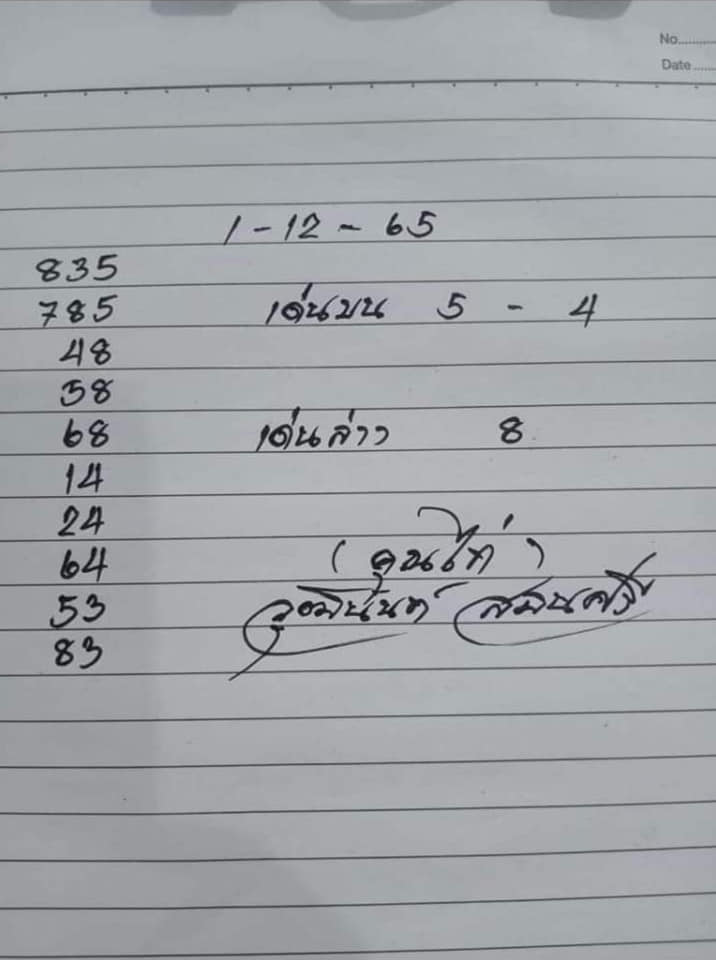 No.........
Date ......
1 - 12 - 65
835
785 เด่นบน 5 - 4
48
58
68 เด่นล่าง 8
14
24
64 (คุณไก่)
53
83